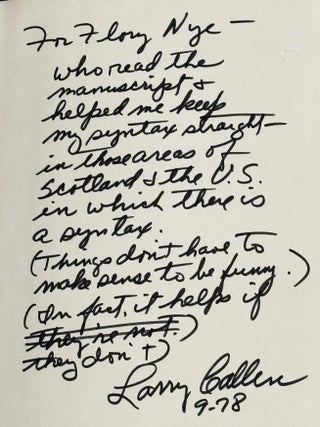 For Flory Nye —
who read the
manuscript &
helped me keep
my syntax straight —
in those areas of
Scotland & the U.S.
in which there is
a syntax.
(Things don't have to
make sense to be funny.)
(In fact, it helps if
they're not.)
they don't)
Larry Callen
9-78